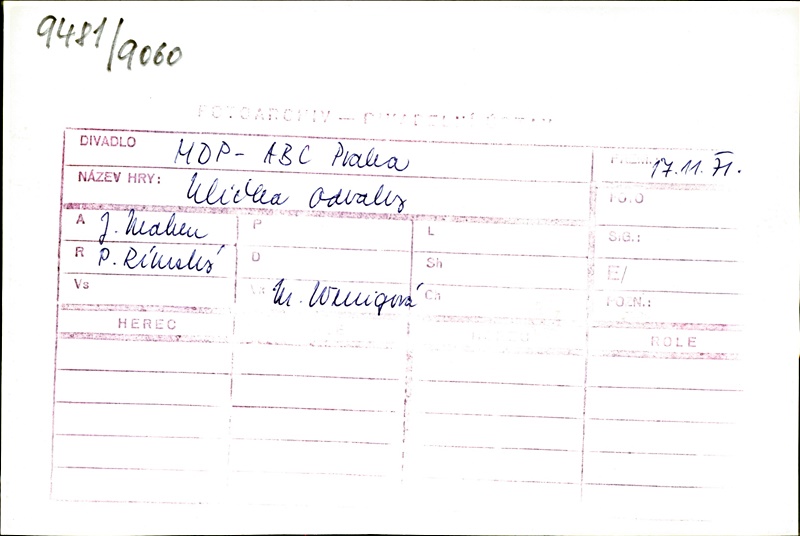 9481/9060
FOTOARCHIV — DIVADELNÍ
DIVADLO MDP - ABC Praha 17.11.71.
NÁZEV HRY: Ulička odvahy FOTO
A J. Mahen P L SIG.:
R P. Rímský D Sh E/
Vs M. Wenigová Ch POZN.:
HEREC ROLE